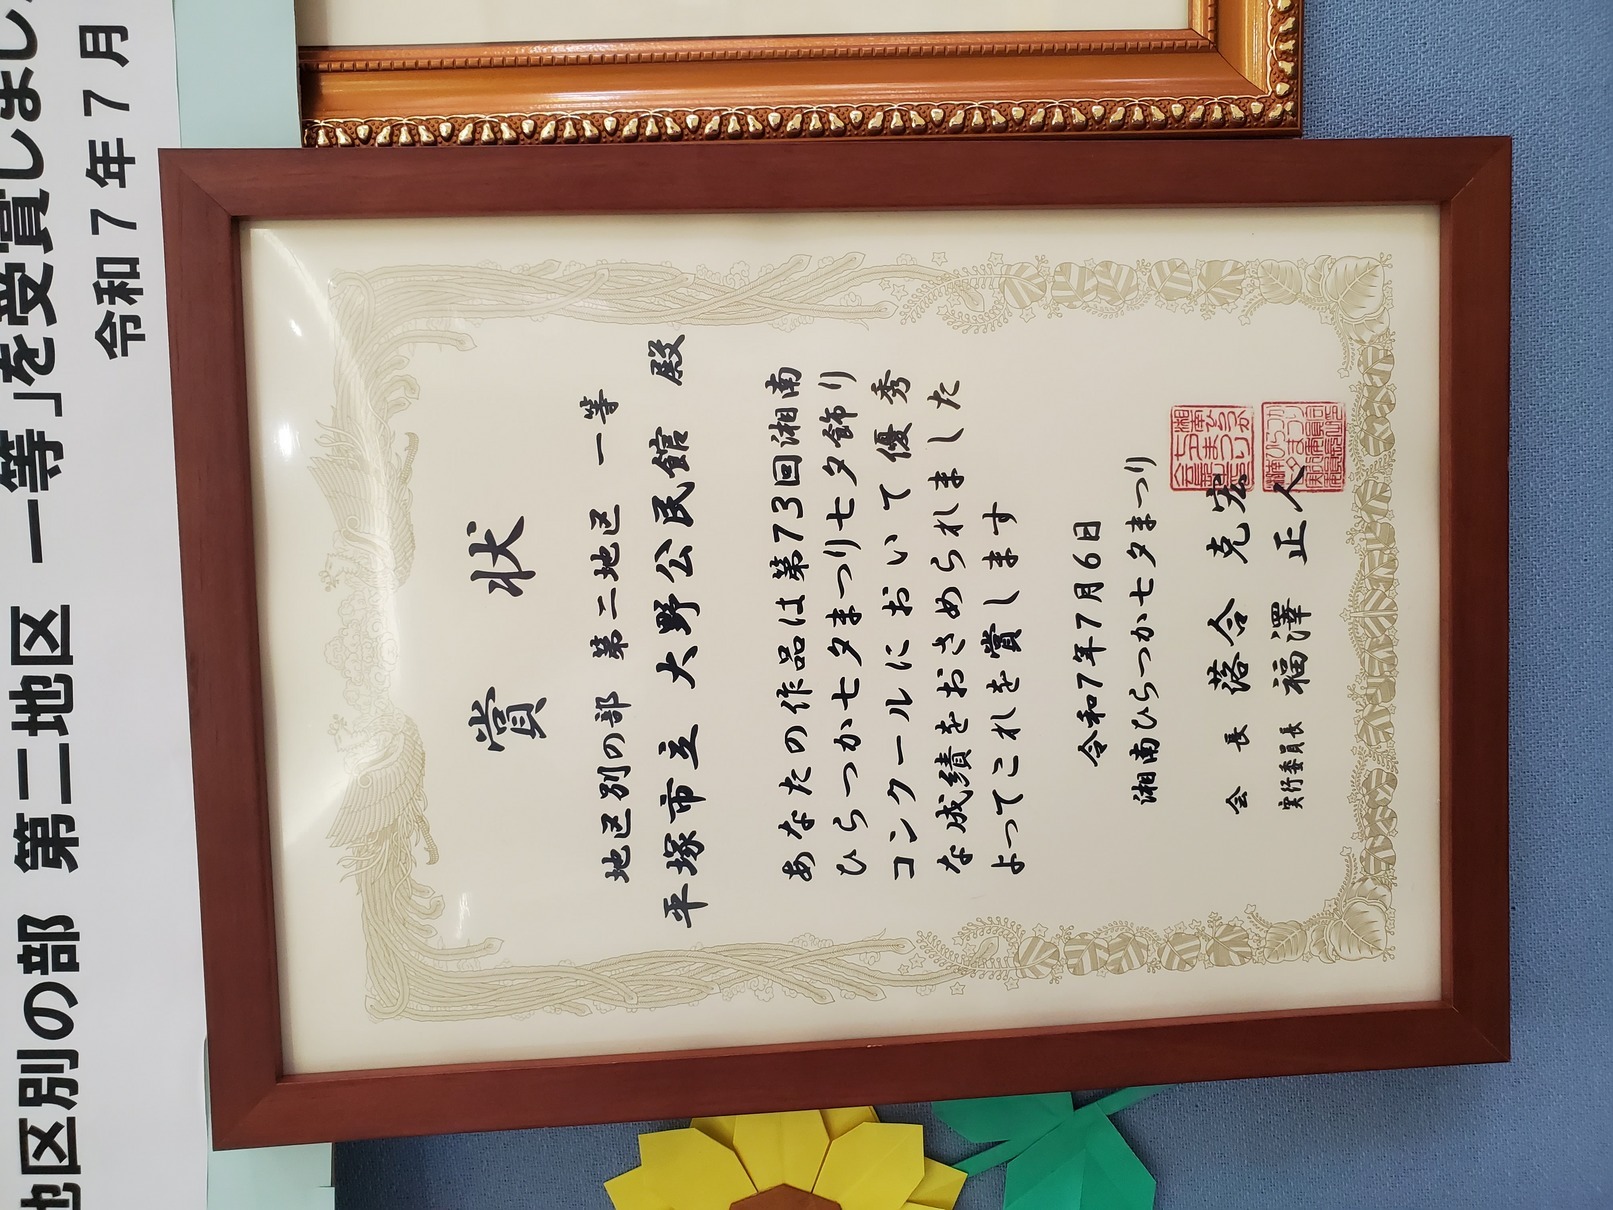 地区別の部 第二地区 一等」を受賞しまし
令和7年7月
賞 状
地区別の部 第二地区 一等
平塚市立 大野公民館 殿
あなたの作品は第73回湘南
ひらつか七夕まつり七夕飾り
コンクールにおいて優秀
な成績をおさめられました
よってこれを賞します
令和7年7月6日
湘南ひらつか七夕まつり
会長 落合 克宏
実行委員長 福澤 正人